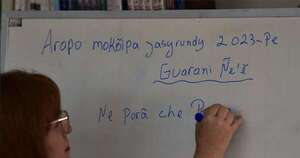 Arapo mokõipa jasyrundy 2023-pe
Guarani Ñe'ẽ
Ne Porã che